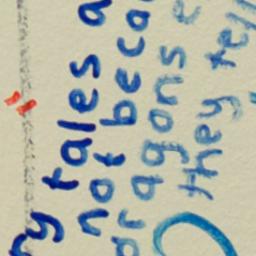 ry tales a
not beca
dragons e
they tell